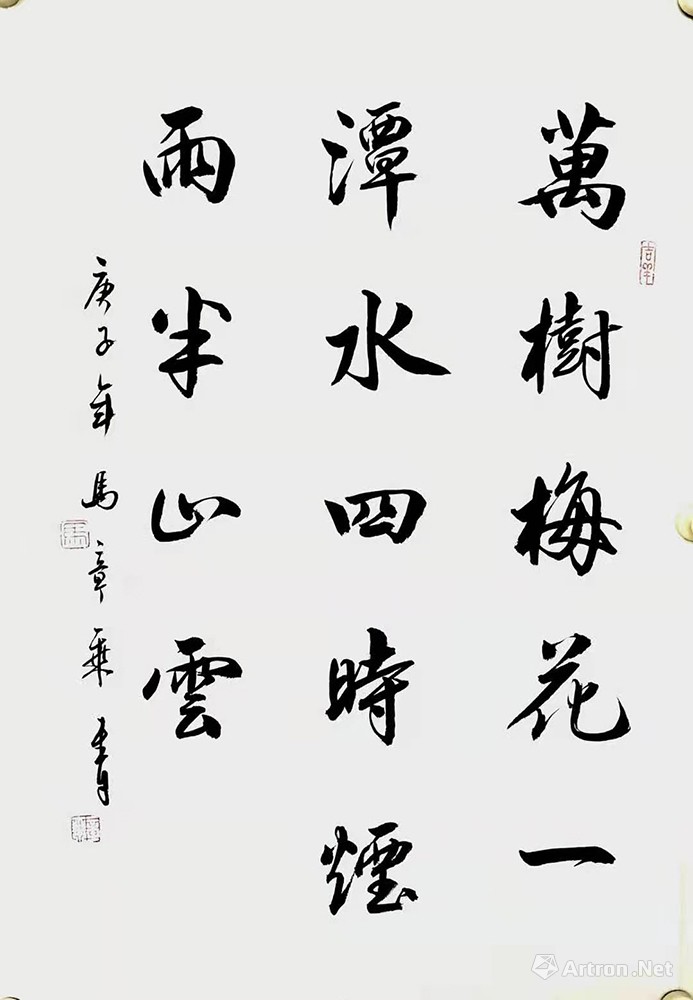 萬樹梅花一
潭水四時煙
雨半山雲
庚子年馬章乘書
Artron.Net